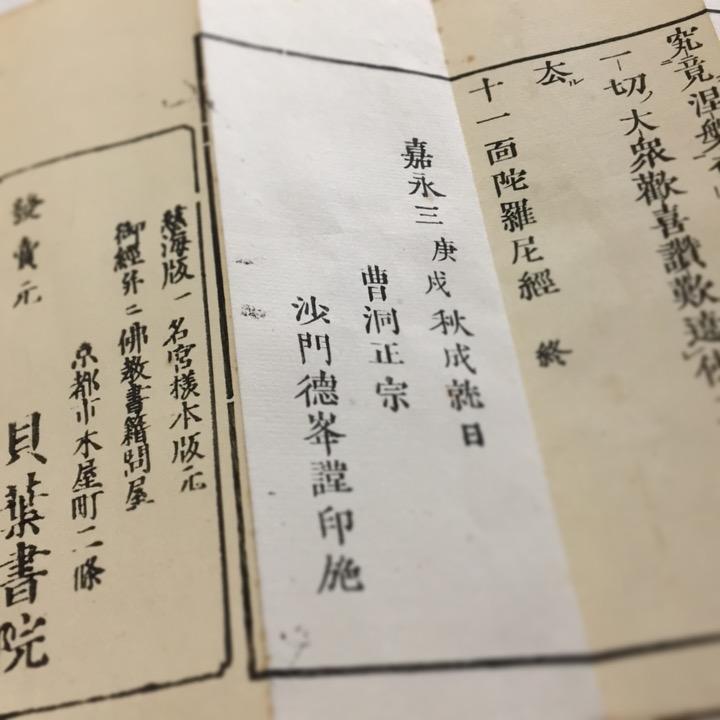 究竟涅槃
一切ノ大衆歡喜讚歎遠
厺ル
十一面陀羅尼經 終
嘉永三庚戌秋成就日
曹洞正宗
沙門德峯謹印施
鐵海版一名宮様本版元
御經外ニ佛教書籍問屋
京都市木屋町二條
發賣元
貝葉書院